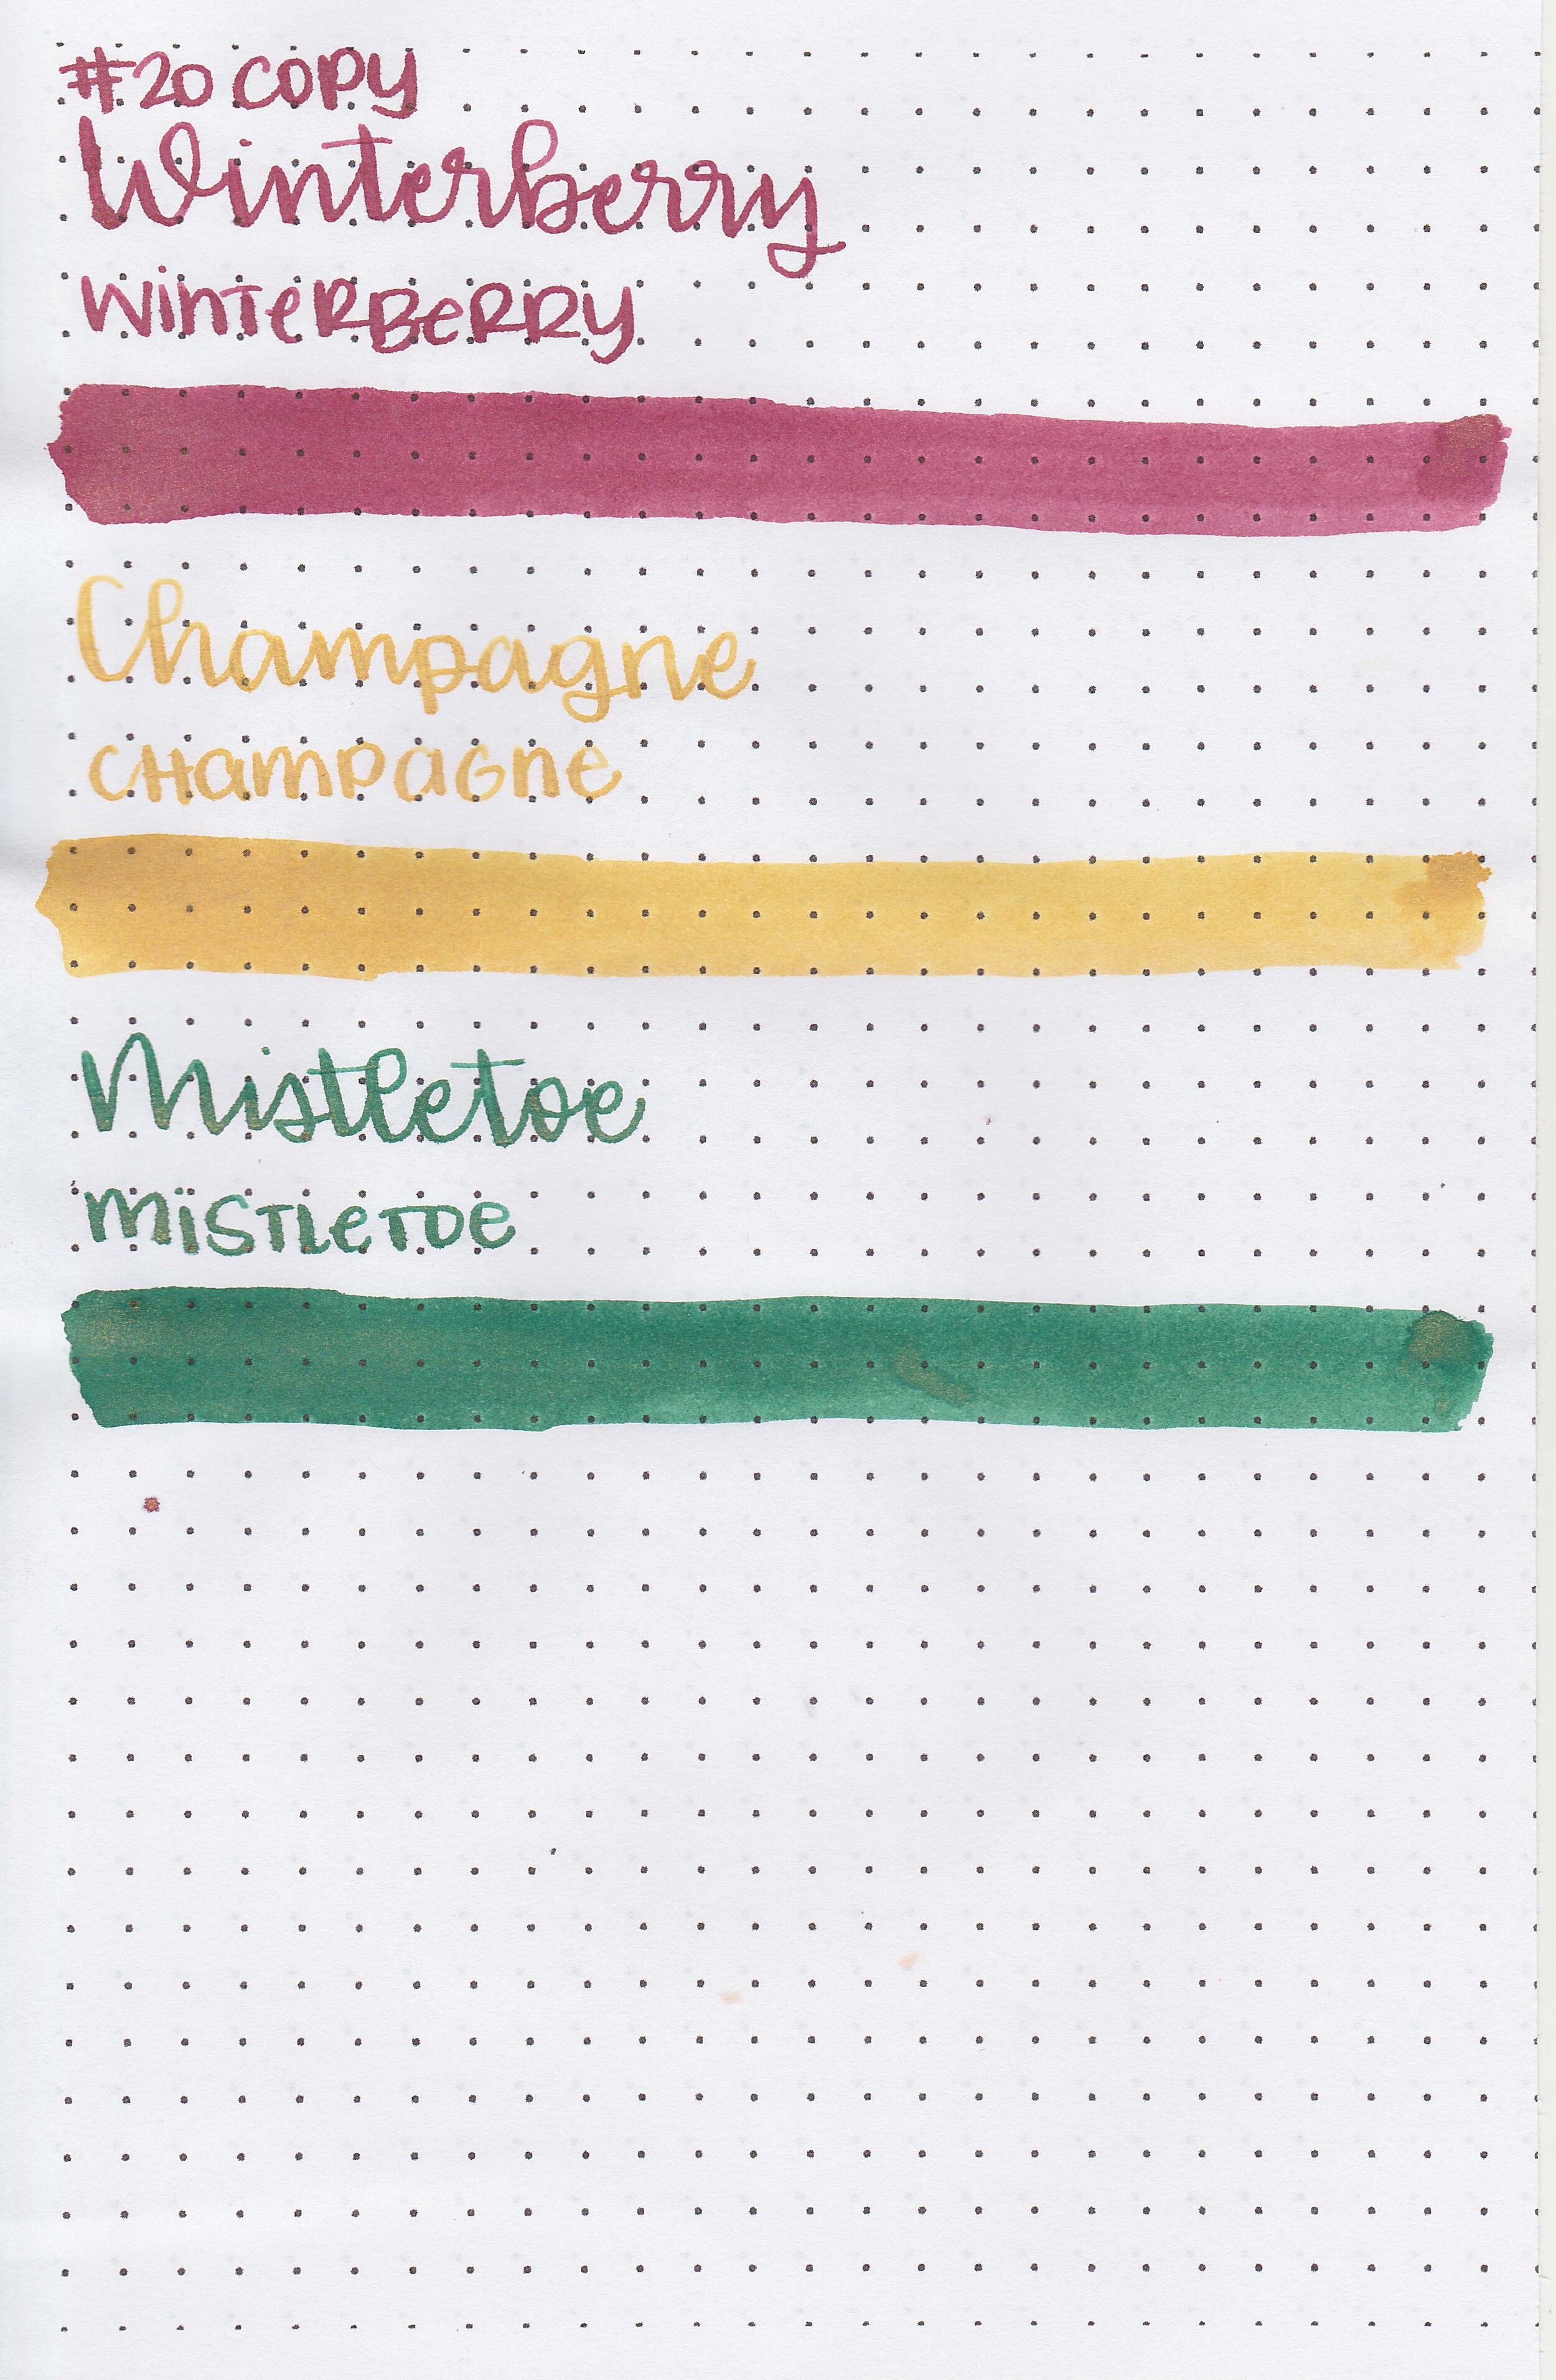 #20 COPY
Winterberry
WinTeRBeRRY
Champagne
CHamPaGne
Mistletoe
MiSTLeTOe